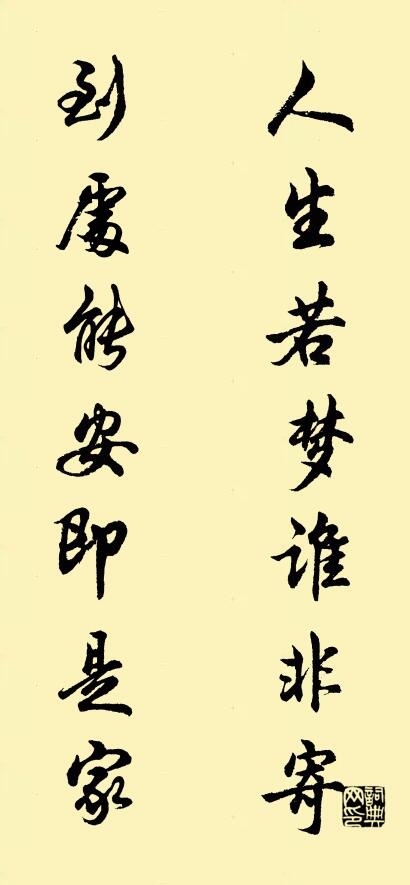 人生若梦谁非寄
到處能安即是家
詞典网印